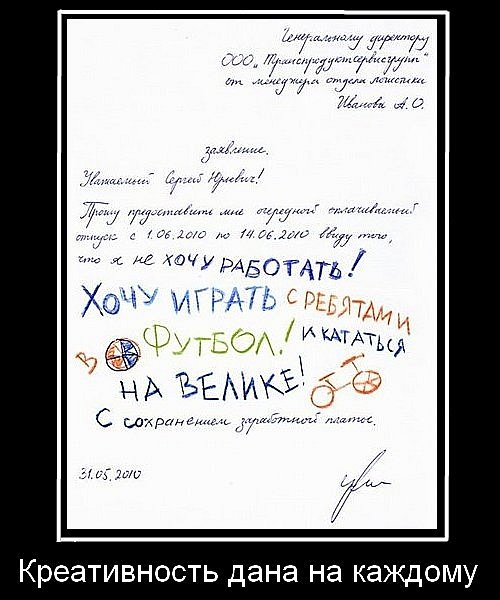 Генеральному директору
ООО „Транспродуктсервисгрупп"
от менеджера отдела логистики
Иванова А.О.
заявление.
Уважаемый Сергей Юрьевич!
Прошу предоставить мне очередной оплачиваемый
отпуск с 1.06.2010 по 14.06.2010 ввиду того,
что я не хочу РАБОТАТЬ!
ХОЧУ ИГРАТЬ С РЕБЯТАМИ
В ФУТБОЛ! И КАТАТЬСЯ
НА ВЕЛИКЕ!
С сохранением заработной платы.
31.05.2010
Креативность дана на каждому